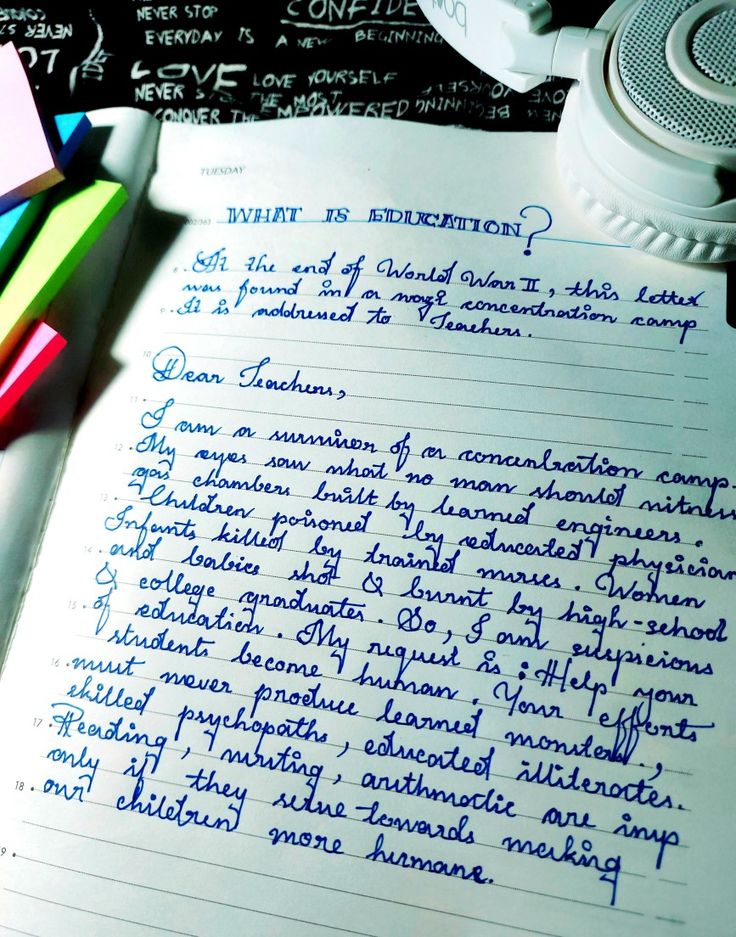 NEVER STOP
CONFIDE
EVERYDAY IS A NEW BEGINNING
LOVE LOVE YOURSELF
NEVER S THE MOST
CONQUER THE MPOWERED
TUESDAY
WHAT IS EDUCATION?
At the end of World War II, this letter
was found in a nazi concentration camp
It is addressed to Teachers.
10
Dear Teachers,
11
I am a survivor of a concentration camp.
12 My eyes saw what no man should witness
gas chambers built by learned engineers.
13 Children poisoned by educated physician
Infants killed by trained nurses. Women
14 and babies shot & burnt by high-school
& college graduates. So, I am suspicious
15 of education. My request is : Help your
students become human. Your efforts
16 must never produce learned monsters.,
skilled psychopaths, educated illiterates.
17 Reading, writing, arithmodic are imp
only if they serve towards making
18 our children more humane.
9